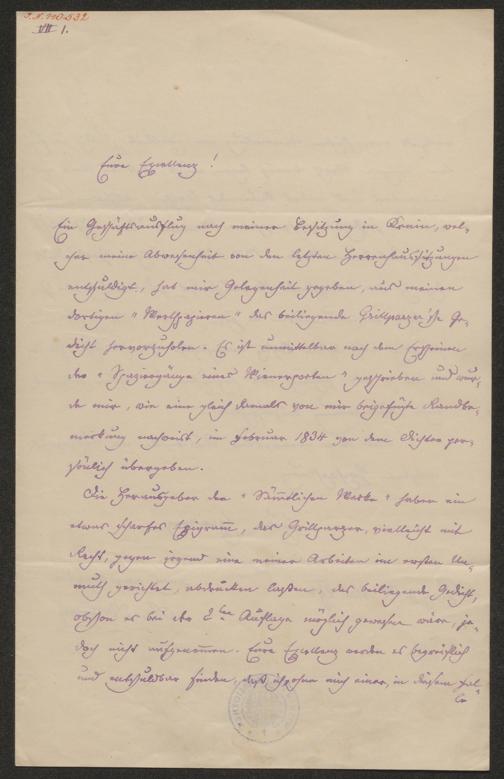 I.N. 110.532
VII 1.
Eure Excellenz!
Ein Geschäftsausflug nach meiner Besitzung in Krain, wel-
cher meine Abwesenheit von den letzten Herrenhaussitzungen
entschuldigt, hat mir Gelegenheit gegeben, aus meinen
dortigen "Werthpapieren" das beiliegende Grillparzer'sche Ge-
dicht hervorzuholen. Es ist unmittelbar nach dem Erscheinen
der "Spaziergänge eines Wienerpoeten" geschrieben und wur-
de mir, wie eine gleich damals von mir beigefügte Randbe-
merkung nachweist, im Februar 1834 von dem Dichter per-
sönlich übergeben.
Die Herausgeber der "Sämmtlichen Werke" haben ein
etwas scharfes Epigramm, das Grillparzer, vielleicht mit
Recht, gegen irgend eine meiner Arbeiten im ersten Un-
muth gerichtet, abdrucken laßen, das beiliegende Gedicht,
obschon es bei der 2ten Auflage möglich gewesen wäre, je-
doch nicht aufgenommen. Eure Excellenz werden es begreiflich
und entschuldbar finden, daß ich schon auch einer, in diesem Fal-
le